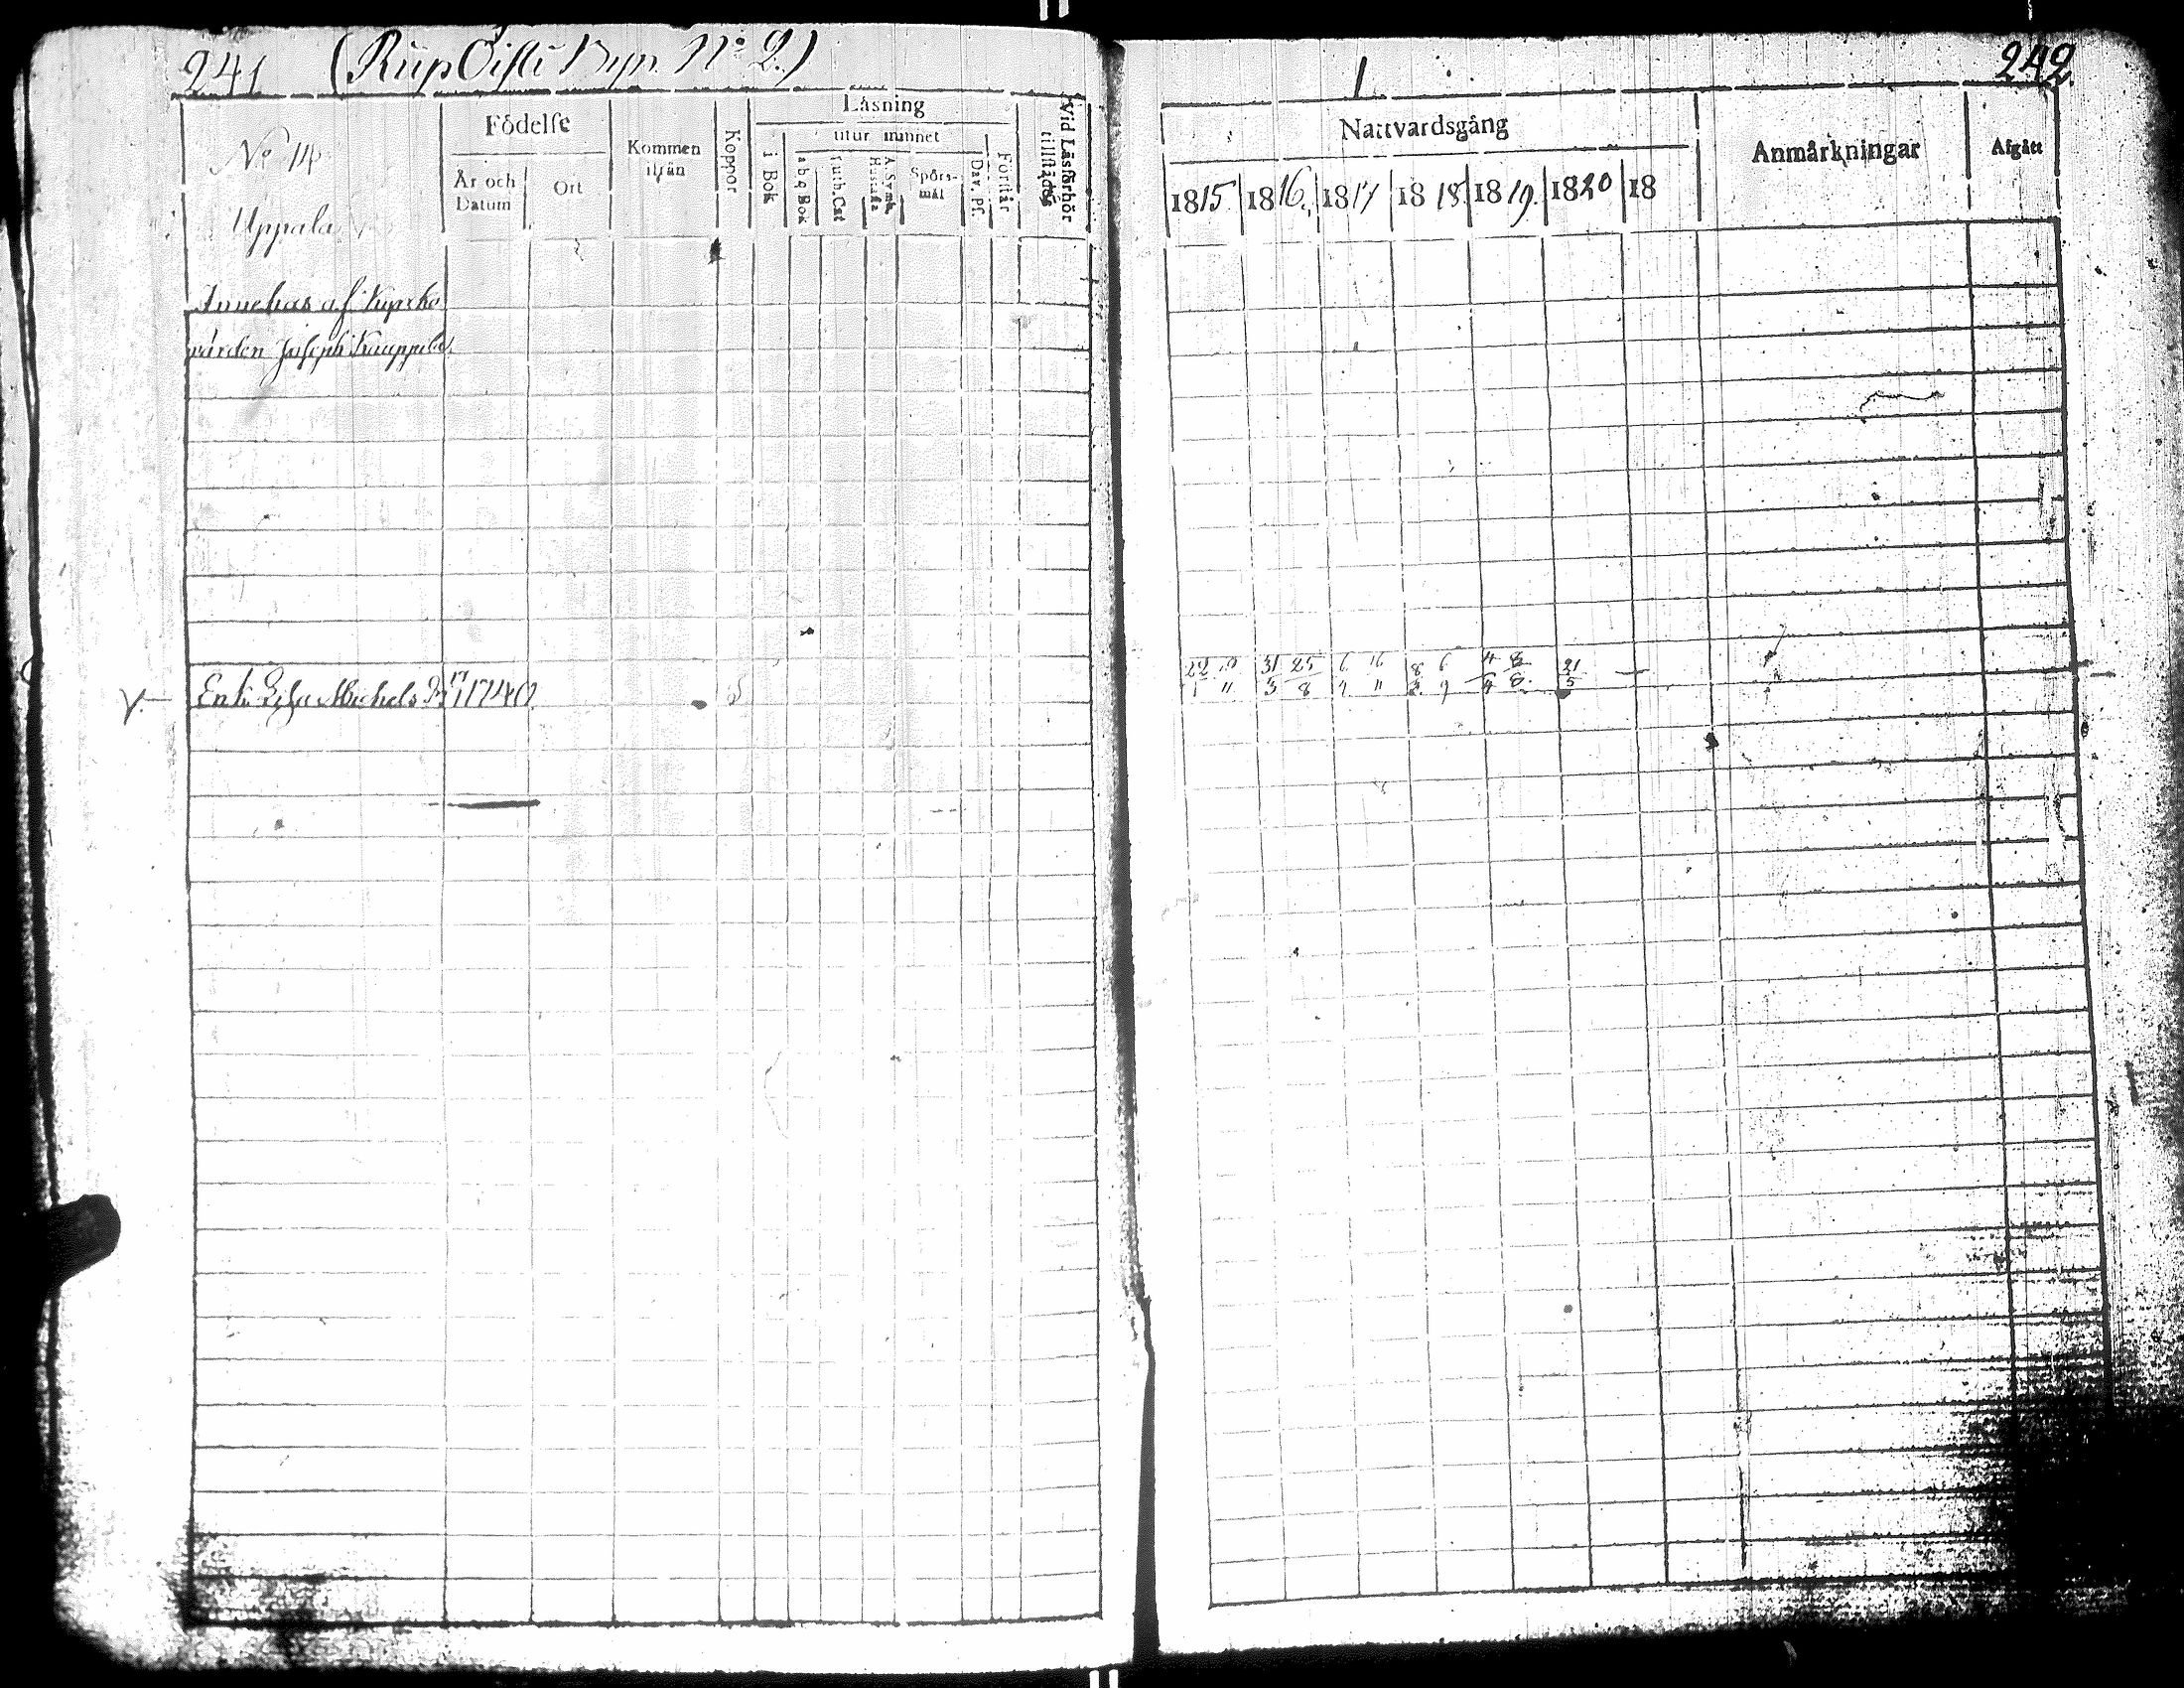 241 (Kiip Öisti Byn. No 2.)
No 14
Uppala
Födelse
År och Datum
Ort
Kommen ifrån
Koppor
Läsning
i Bok
utur minnet
a b c Bok
Luth. Cat
A. Symb. Hustafla
Spörs-mål
Dav. Ps.
Förstår
Vid Läsförhör tillstädes
Innehas af Kyrko
värden Joseph Kauppila.
Enk. Lisa Michels Dr 17 1740
242
Nattvardsgång
Anmärkningar
Afgått
1815. 1816. 1817 1818. 1819. 1820 18
22 19 31 25 6 16 8 6 4 8 21
1 11 3 8 4 11 3 9 4 8. 5